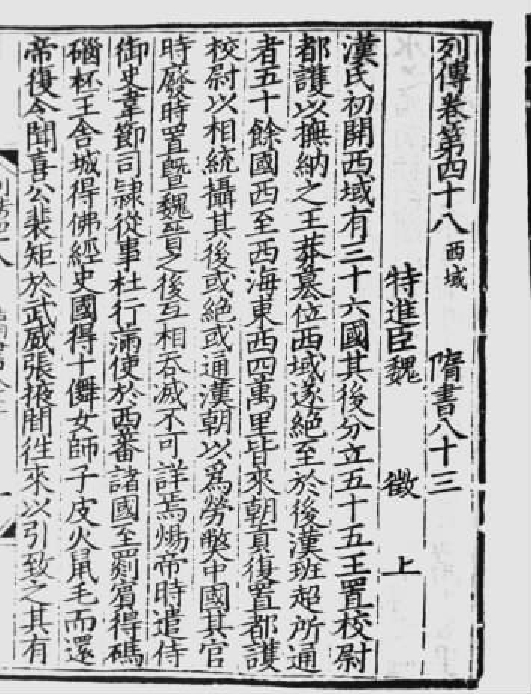 列傳卷第四十八 西域 隋書八十三
特進臣魏 徵 上
漢氏初開西域有三十六國其後分立五十五王置校尉
都護以撫納之王莽篡位西域遂絕至於後漢班超所通
者五十餘國西至西海東西四萬里皆來朝貢復置都護
校尉以相統攝其後或絕或通漢朝以爲勞弊中國其官
時廢時置暨魏晉之後互相吞滅不可詳焉煬帝時遣侍
御史韋節司隸從事杜行滿使於西蕃諸國至罽賓得碼
碯杯王舍城得佛經史國得十儛女師子皮火鼠毛而還
帝復令聞喜公裴矩於武威張掖間往來以引致之其有